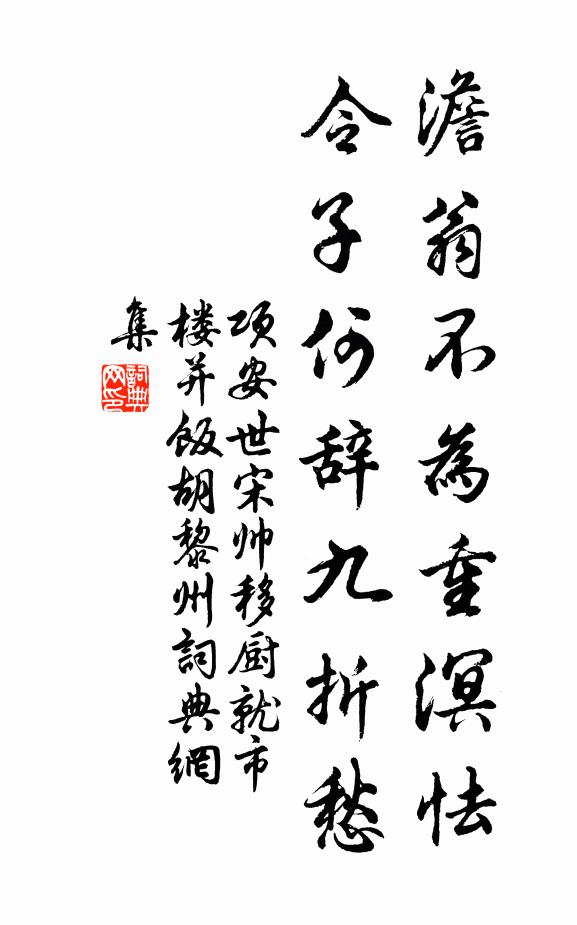 澹翁不為重溟怯
令子何辞九折愁
项安世宋帅移厨就市
楼并饭胡黎州詞典網
集
詞典
网印